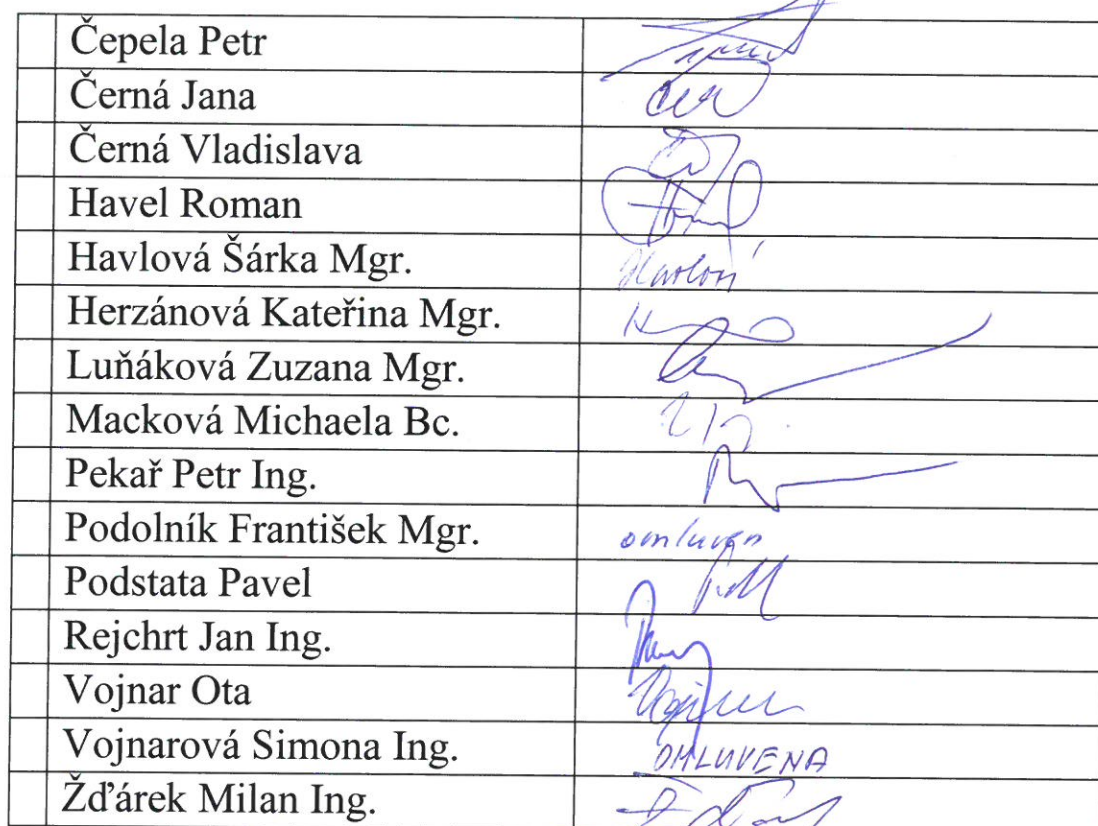 Čepela Petr
Černá Jana
Černá Vladislava
Havel Roman
Havlová Šárka Mgr. Havlová
Herzánová Kateřina Mgr.
Luňáková Zuzana Mgr.
Macková Michaela Bc.
Pekař Petr Ing.
Podolník František Mgr. omluven
Podstata Pavel
Rejchrt Jan Ing.
Vojnar Ota Vojnar
Vojnarová Simona Ing. OMLUVENA
Žďárek Milan Ing.